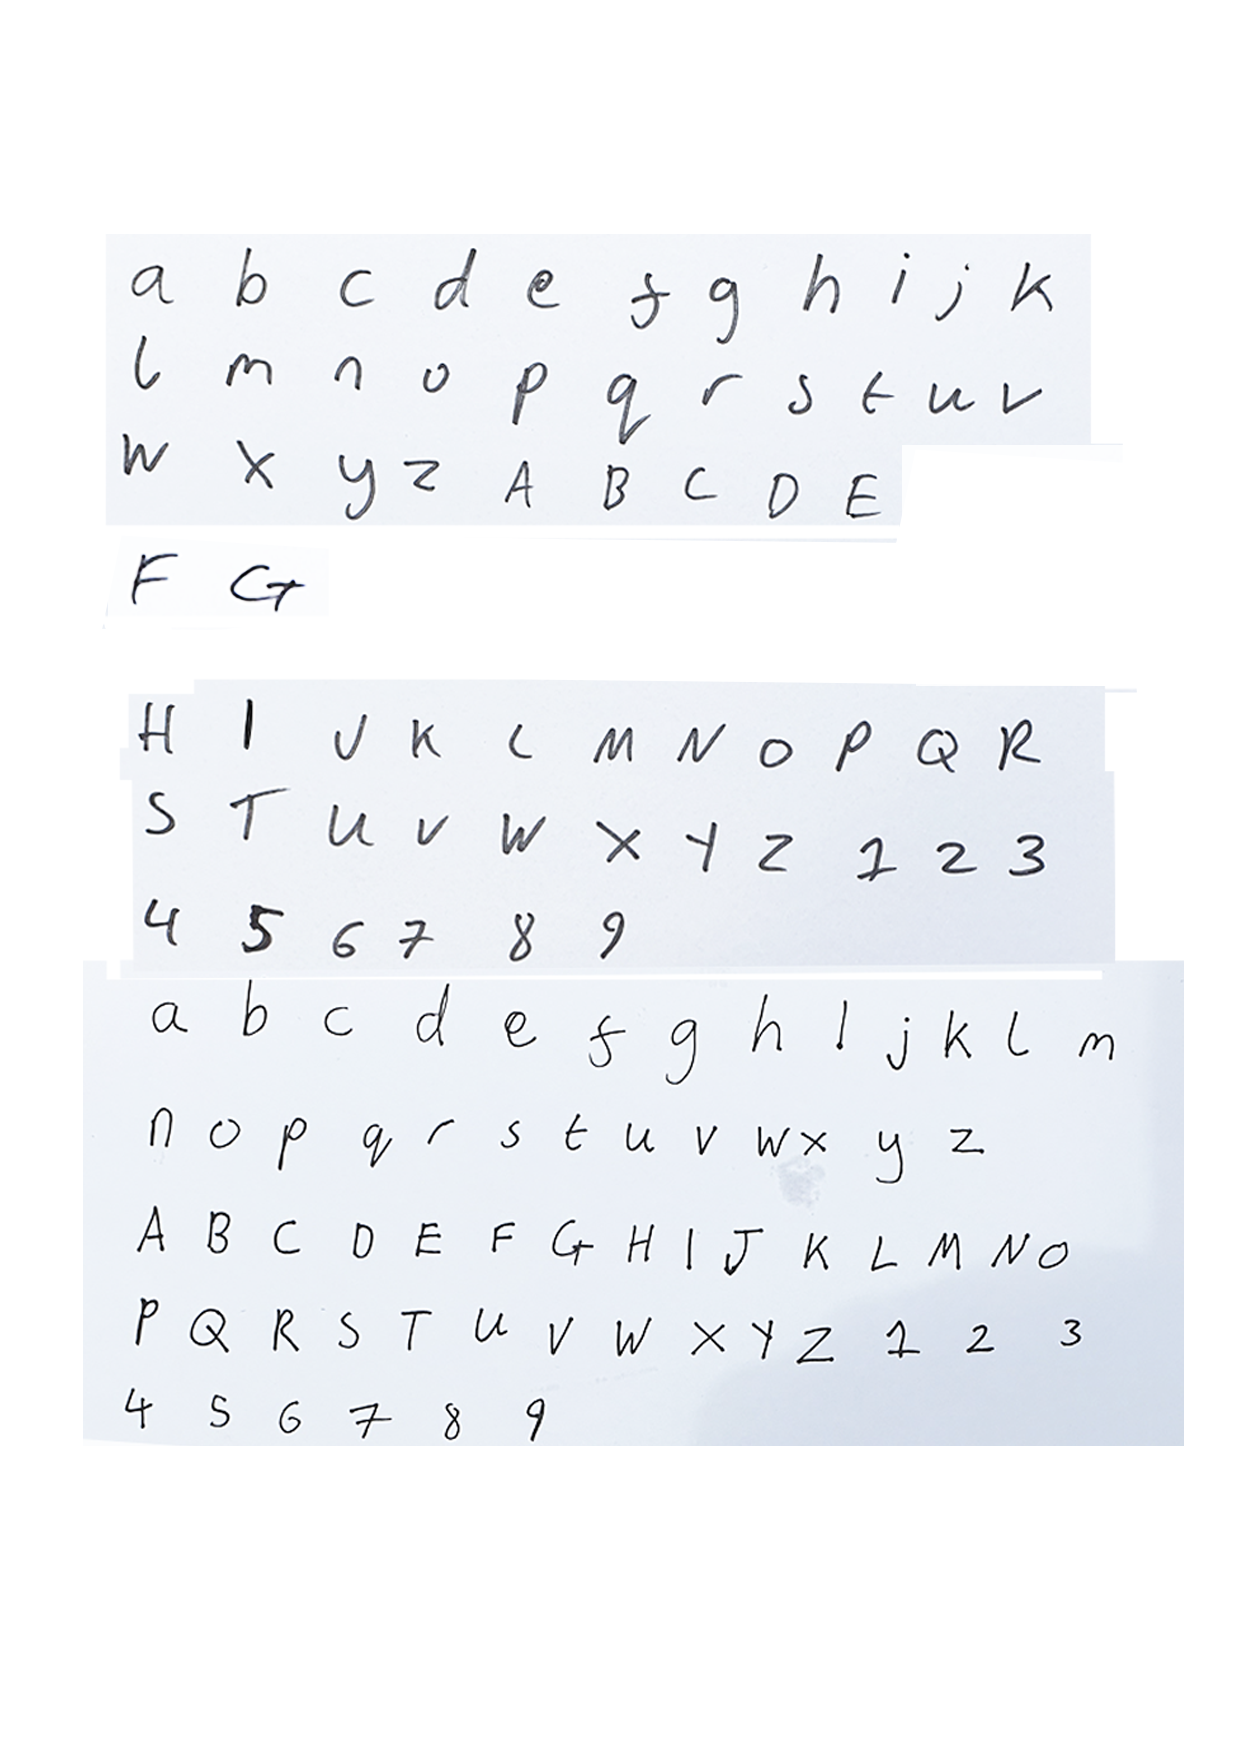 a b c d e f g h i j k
l m n o p q r s t u v
w x y z A B C D E
F G
H I J K L M N O P Q R
S T U V W X Y Z 1 2 3
4 5 6 7 8 9
a b c d e f g h i j k l m
n o p q r s t u v w x y z
A B C D E F G H I J K L M N O
P Q R S T U V W X Y Z 1 2 3
4 5 6 7 8 9